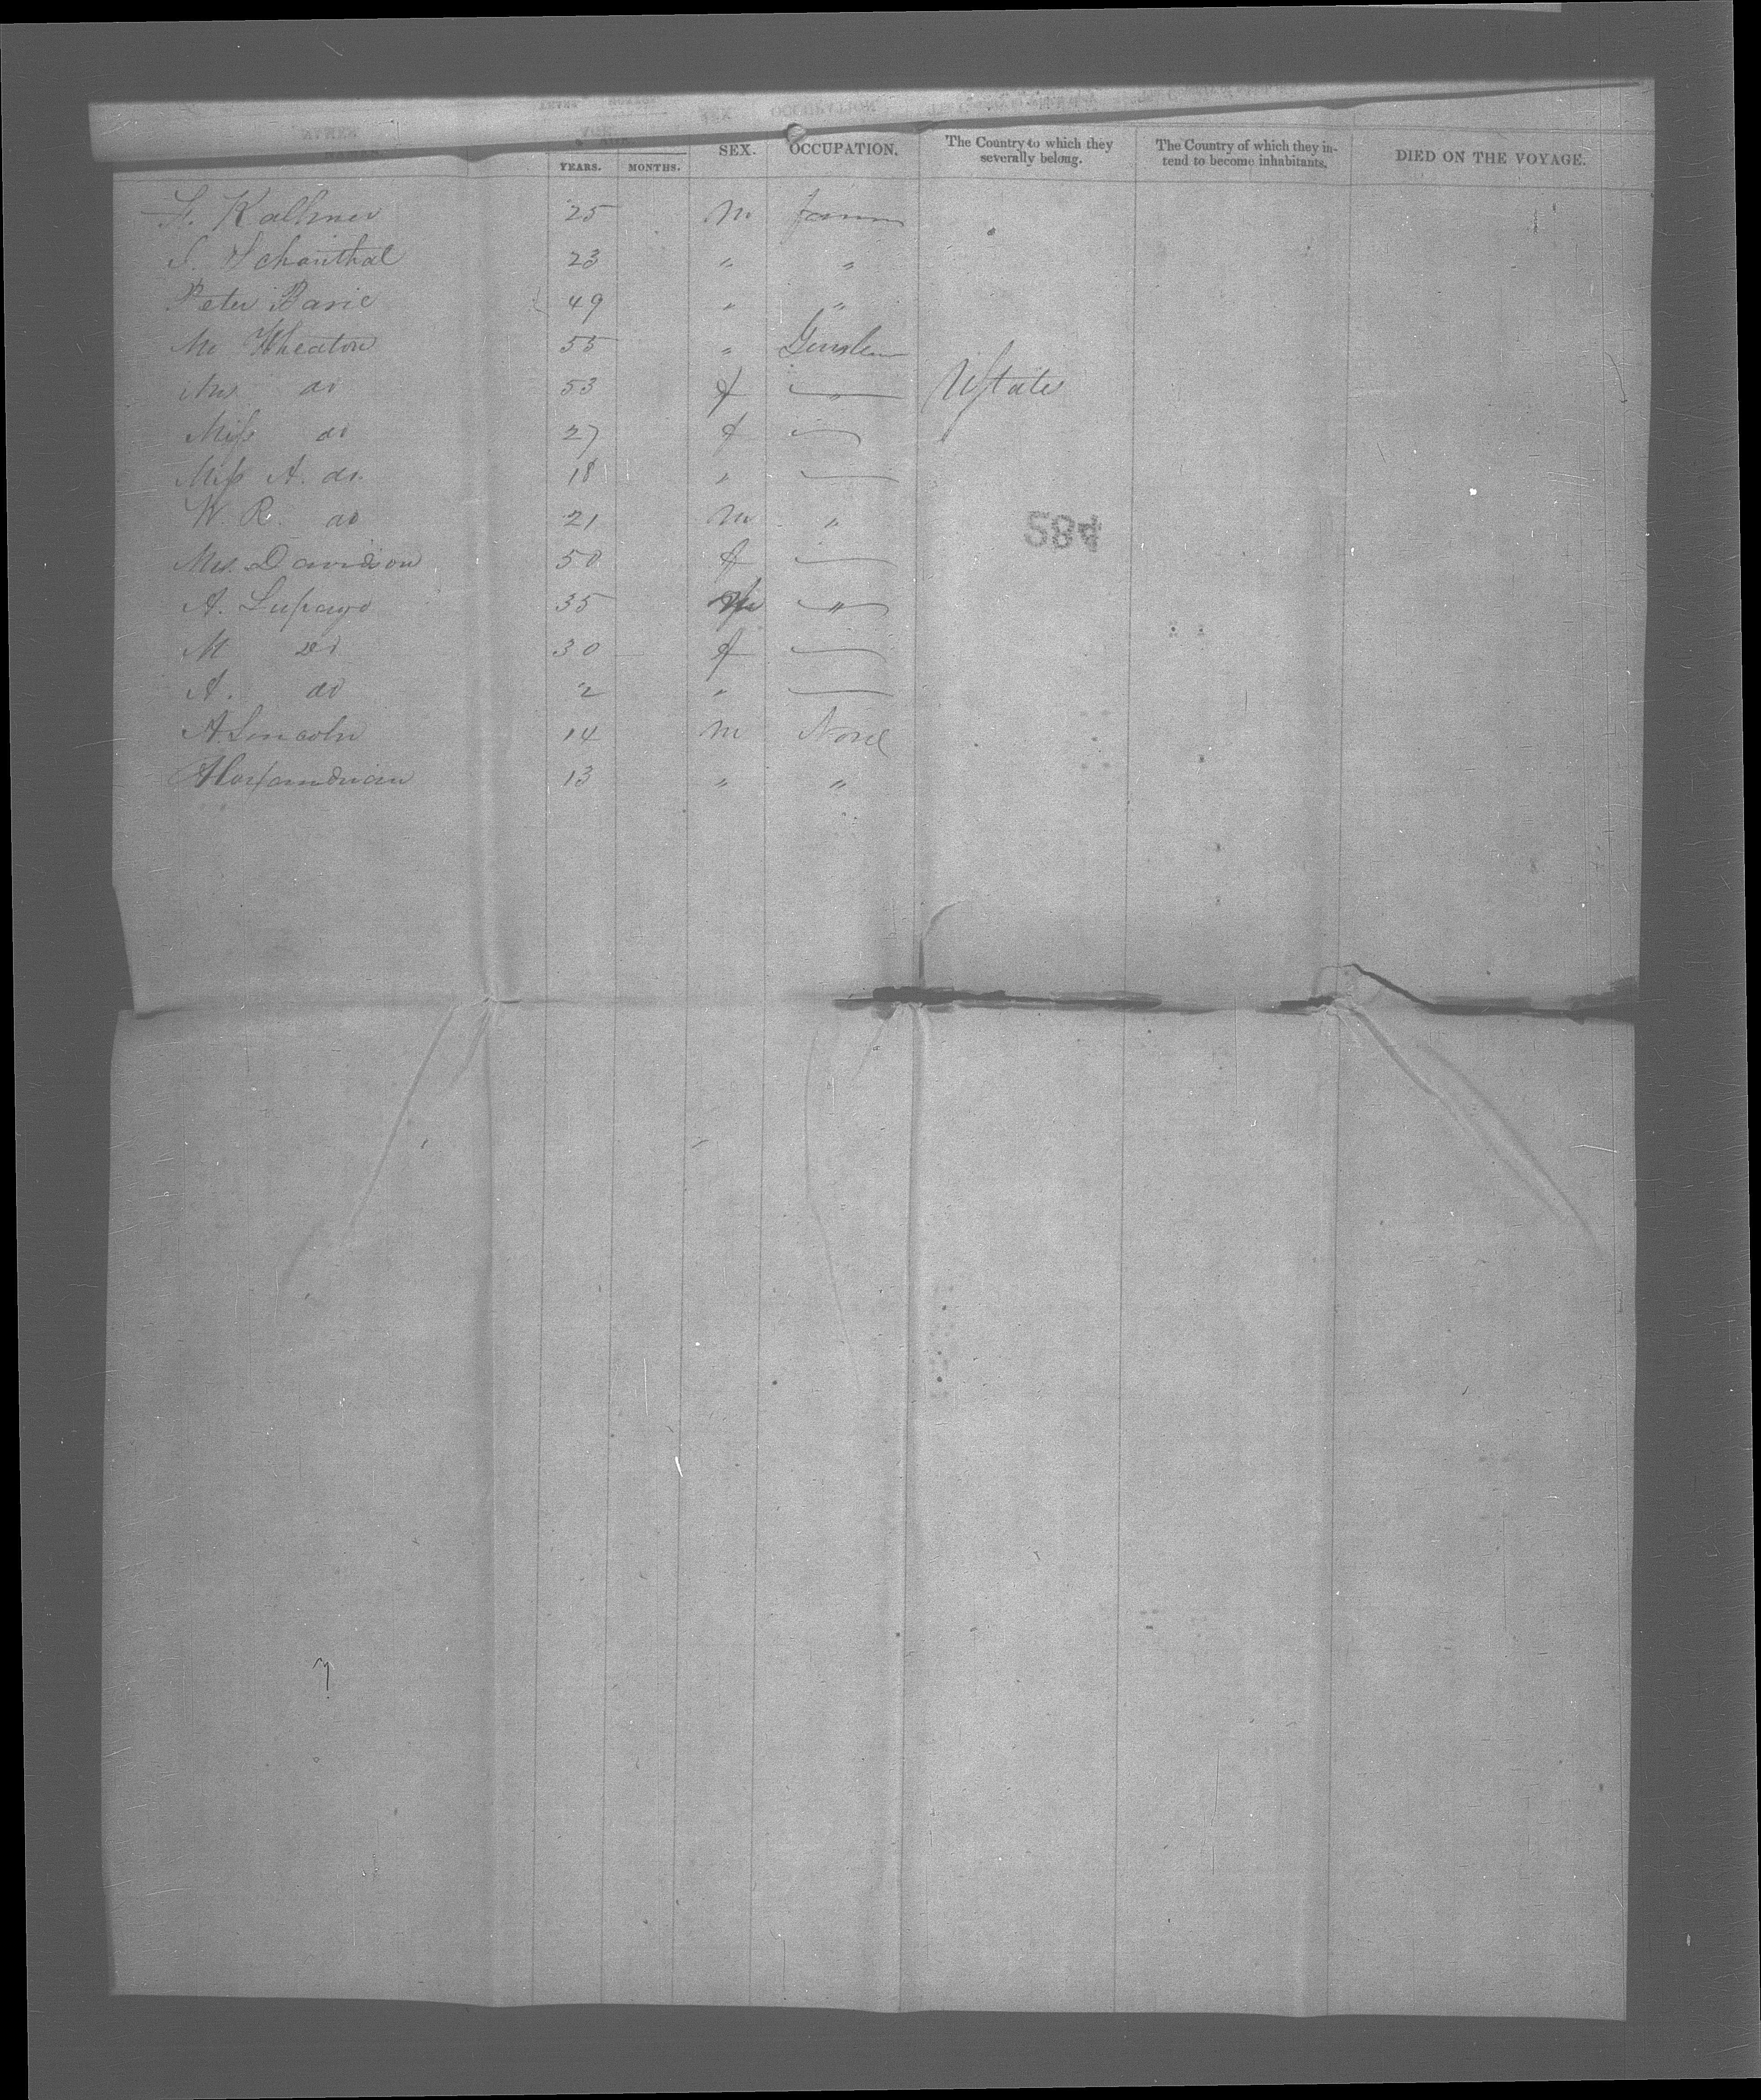 SEX. OCCUPATION. The Country to which they severally belong. The Country of which they intend to become inhabitants. DIED ON THE VOYAGE.
YEARS. MONTHS.
F. Kallmer 25 m farm
S. Schonthal 23 " "
Peter 49 " "
Mr Wheaton 55 "
Mrs do 53 f " UStates
Miss do 27 f
Miss A. do. 18 "
W. R. do 21 m "
Mrs. Davidson 50 f
A. 35 m "
M do 30 f
A. do 2 "
A Lincoln 14 m None
13 " "
584